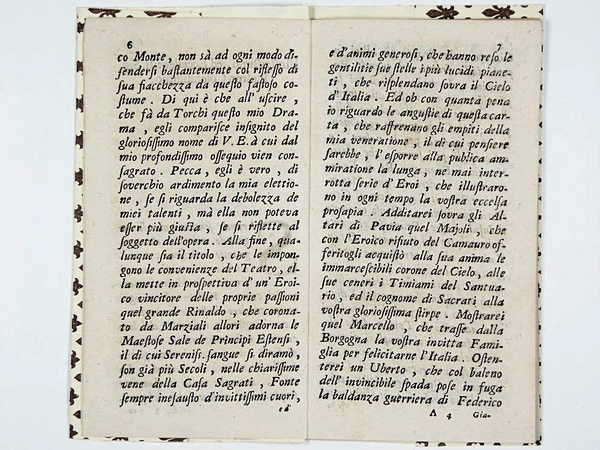 6
co Monte, non sà ad ogni modo di-
fendersi bastantemente col riflesso di
sua fiacchezza da questo fastoso co-
stume. Di quì è che all' uscire,
che fà da Torchi questo mio Dra-
ma, egli comparisce insignito del
gloriosissimo nome di V. E. à cui dal
mio profondissimo ossequio vien con-
sagrato. Pecca, egli è vero, di
soverchio ardimento la mia elettio-
ne, se si riguarda la debolezza de
miei talenti, mà ella non poteva
esser più giusta, se si riflette al
soggetto dell'opera. Alla fine, qua-
lunque sia il titolo, che le impon-
gono le convenienze del Teatro, el-
la mette in prospettiva d' un' Eroi-
co vincitore delle proprie passioni
quel grande Rinaldo, che corona-
to da Marziali allori adorna le
Maestose Sale de Principi Estensi,
il di cui Sereniss. sangue si diramò,
son già più Secoli, nelle chiarissime
vene della Casa Sagrati, Fonte
sempre inesausto d'invittissimi cuori,
ed
7
e d'animi generosi, che hanno reso le
gentilitie sue stelle i più lucidi piane-
ti, che risplendano sovra il Cielo
d' Italia. Ed ob con quanta pena
io riguardo le angustie di questa car-
ta, che raffrenano gli empiti della
mia veneratione, il di cui pensiere
sarebbe, l' esporre alla publica am-
miratione la lunga, ne mai inter-
rotta serie d' Eroi, che illustraro-
no in ogni tempo la vostra eccelsa
prosapia. Additarei sovra gli Al-
tari di Pavia quel Majoli, che
con l'Eroico rifiuto del Camauro of-
feritogli acquistò alla sua anima le
immarcescibili corone del Cielo, alle
sue ceneri i Timiami del Santua-
rio, ed il cognome di Sacrati alla
vostra gloriosissima stirpe. Mostrarei
quel Marcello, che trasse dalla
Borgogna la vostra invitta Fami-
glia per felicitarne l'Italia. Osten-
terei un Uberto, che col baleno
dell' invincibile spada pose in fuga
la baldanza guerriera di Federico
A 4 Gia-